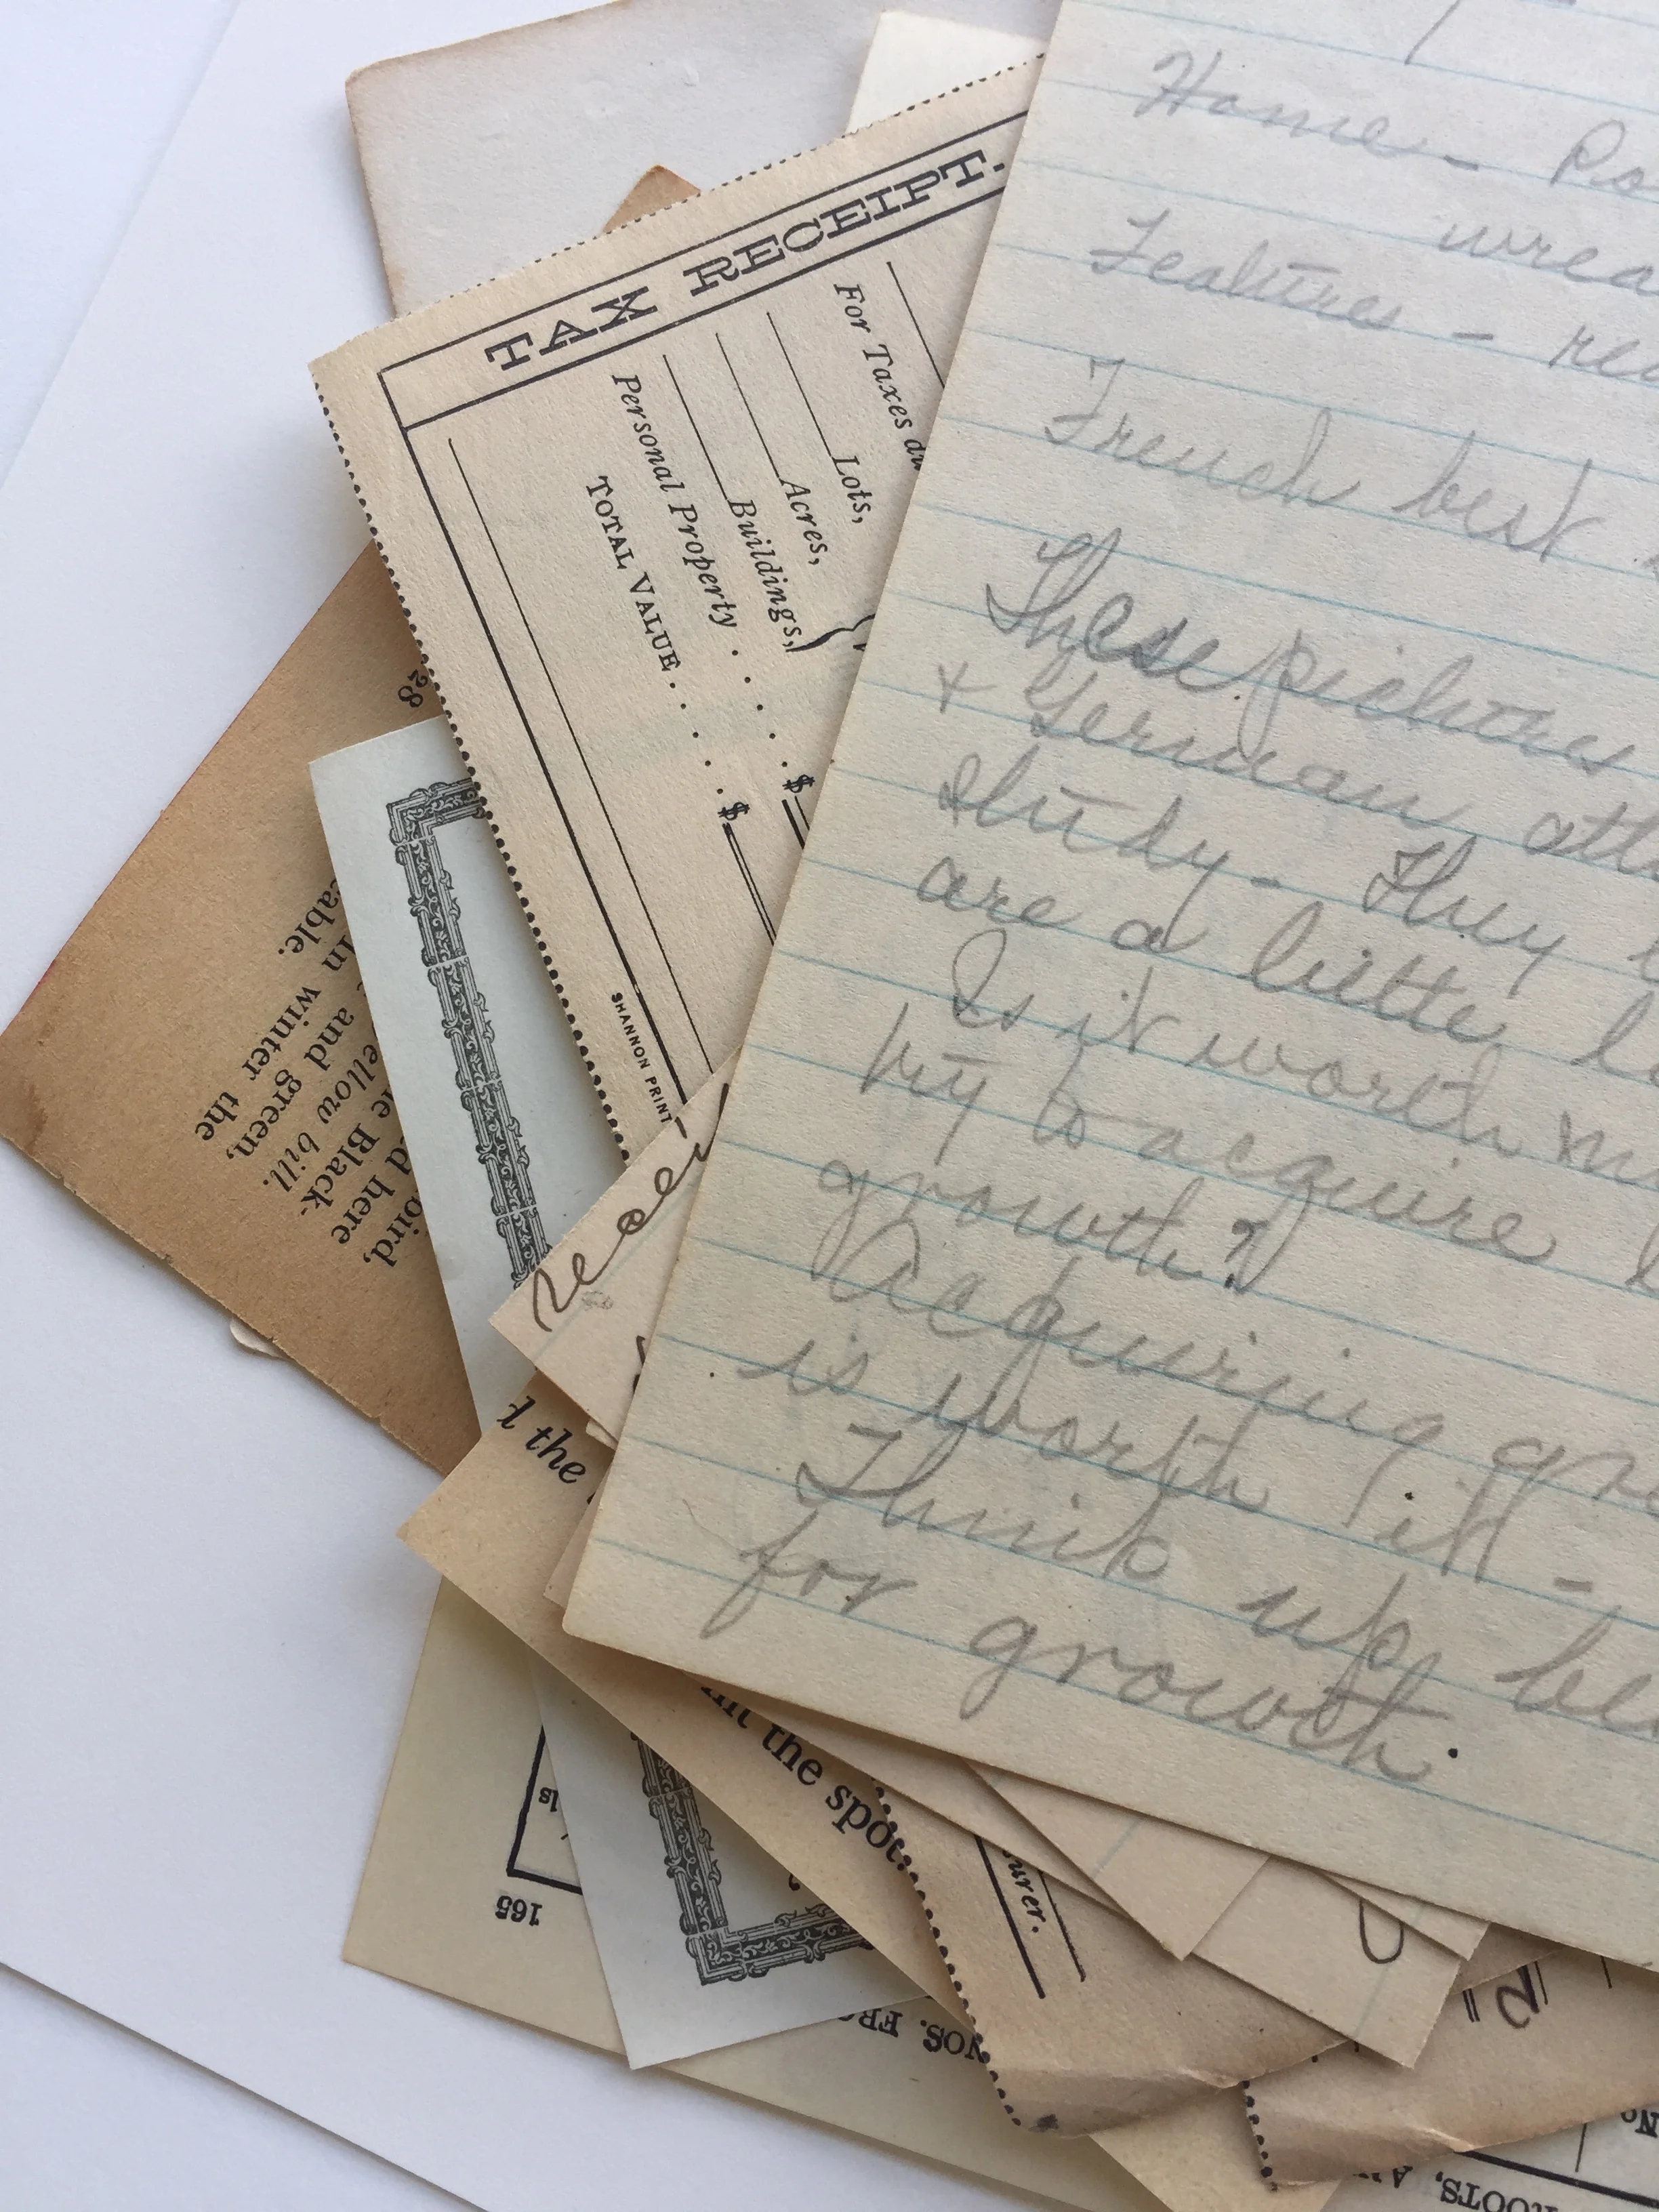 Home - Po
wrea
Features - rec
French best
These pictures
& German att
study - They
are a little l
Is it worth
try to acquire
growth?
Acquiring gro
is worth it -
Think up be
for growth.
TAX RECEIPT.
For Taxes du
Lots,
Acres,
Buildings,
Personal Property . . . . $
TOTAL VALUE . . . . . $
SHANNON PRINT
28
oird,
d here
e Black-
ellow bill.
and green,
In winter the
able.
l the
nt the spot.
urer.
165
ls
NOS. FRO
ROOTS, A
No